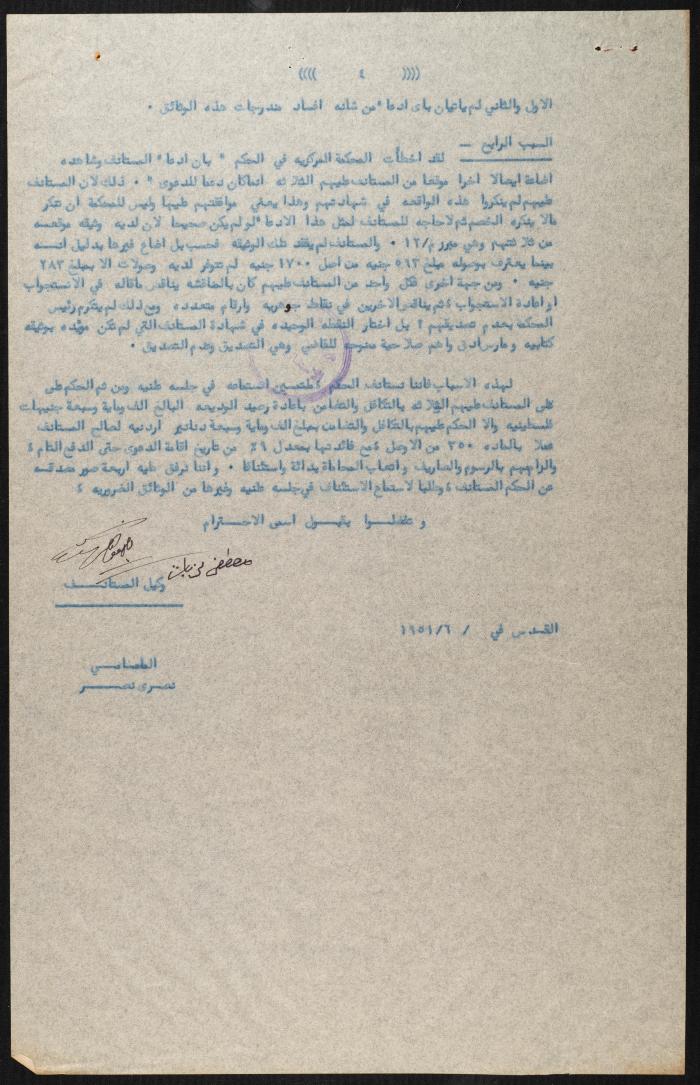 (((( ٤ ))))
الاول والثاني لم ياتيان باى ادعا* من شانه افساد مندرجات هذه الوثائق .
السبب الرابع — لقد اخطأت المحكمة المركزيه في الحكم " بان ادعا* المستانف وشاهده
اضاعة ايصالا اخرا موقعا من المستانف عليهم الثلاثه انماكان دعما للدعوى " . ذلك لان المستانف
عليهم لم ينكروا هذه الواقعه في شهادتهم وهذا يعني موافقتهم عليها وليس للمحكمة ان تنكر
مالا ينكره الخصم ثم لاحاجه للمستانف لمثل هذا الادعا* لو لم يكن صحيحا لان لديه وثيقه موقعه
من ثلاثتهم وهي مبرز م/١٢ . والمستانف لم يفقد تلك الوثيقه فحسب بل اضاع غيرها بدليل انه
بينما يعترف بوصوله مبلغ ٥١٣ جنيه من اصل ١٧٠٠ جنيه لم تتوفر لديه وصولات الا بمبلغ ٢٨٣
جنيه . ومن جهة اخرى فكل واحد من المستانف عليهم كان بالمناقشه يناقض ماقاله في الاستجواب
او اعادة الاستجواب ثم يناقض الاخرين في نقاط جوهريه وارقام متعدده ومع ذلك لم يتكرم رئيس
المحكمة بعدم تصديقهم ! بل اختار النقطه الوحيده في شهادة المستانف التي لم تكن مؤيده بوثيقه
كتابيه ومارس ادق واهم صلاحية ممنوحه للقاضي وهي التصديق وعدم التصديق .
لهذه الاسباب فاننا نستانف الحكم ملتمسين استماعه في جلسه علنيه ومن ثم الحكم على
على المستانف عليهم الثلاثه بالتكافل والتضامن باعادة رصيد الوديعه البالغ الف وماية وسبعة جنيهات
فلسطينيه والا الحكم عليهم بالتكافل والتضامن بمبلغ الف وماية وسبعة دنانير اردنيه لصالح المستانف
عملا بالماده ٣٥٠ من الاصول مع فائدتها بمعدل ٩٪ من تاريخ اقامة الدعوى حتى الدفع التام
والزامهم بالرسوم والمصاريف واتعاب المحاماة بدائة واستئنافا . واننا نرفق طيه اربعة صور مصدقه
عن الحكم المستانف وطلبا لاستماع الاستئناف في جلسه علنيه وغيرها من الوثائق الضروريه
وتفضلوا بقبول اسمى الاحترام
وكيل المستانف
القدس في / ٦/ ١٩٥١
المحامي
نصرى نصر